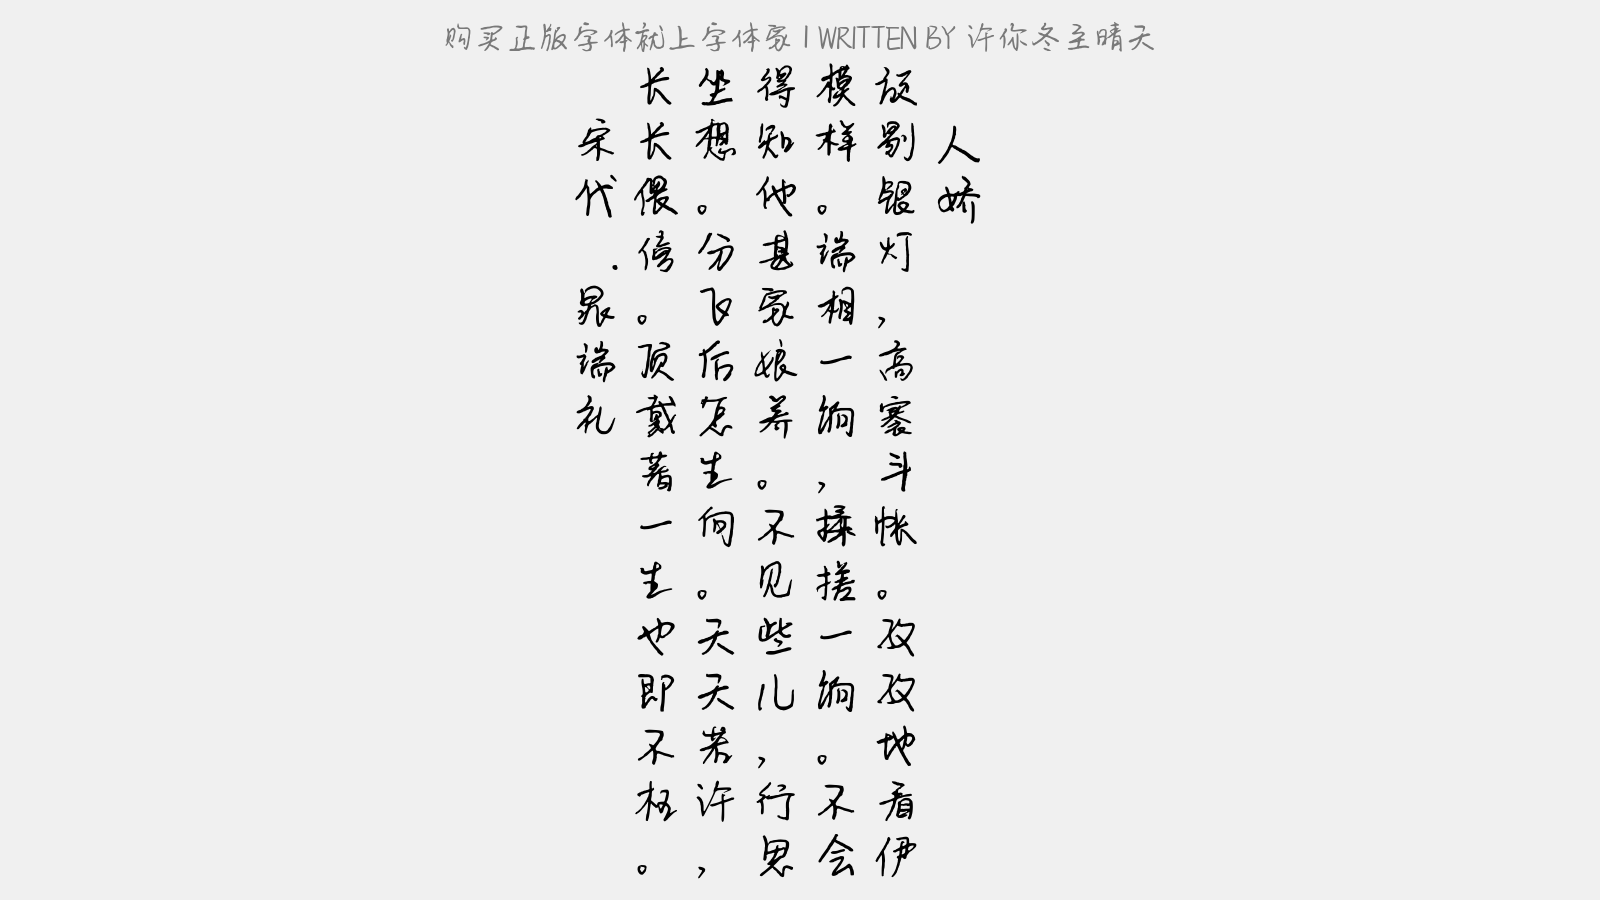 购买正版字体就上字体家 | WRITTEN BY 许你冬至晴天
人娇
旋剔银灯，高褰斗帐。孜孜地看伊
模样。端相一饷，揉搓一饷。不会
得知他甚家娘养。不见些儿，行思
坐想。分飞后怎生向。天天若许，
长长偎傍。顶戴著一生也即不枉。
宋代.晁端礼